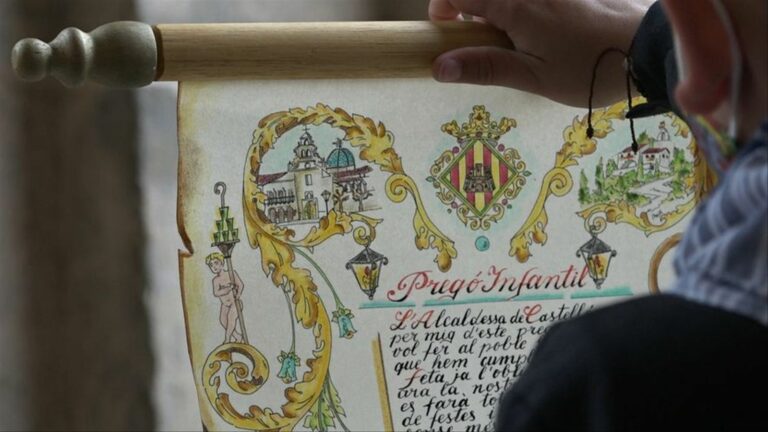 Pregó Infantil
L'Alcaldessa de Castelló
per mig d'este pre
vol fer al poble
que hem compl
Feta ja l'ob
ara la nost
es farà to
de festes i